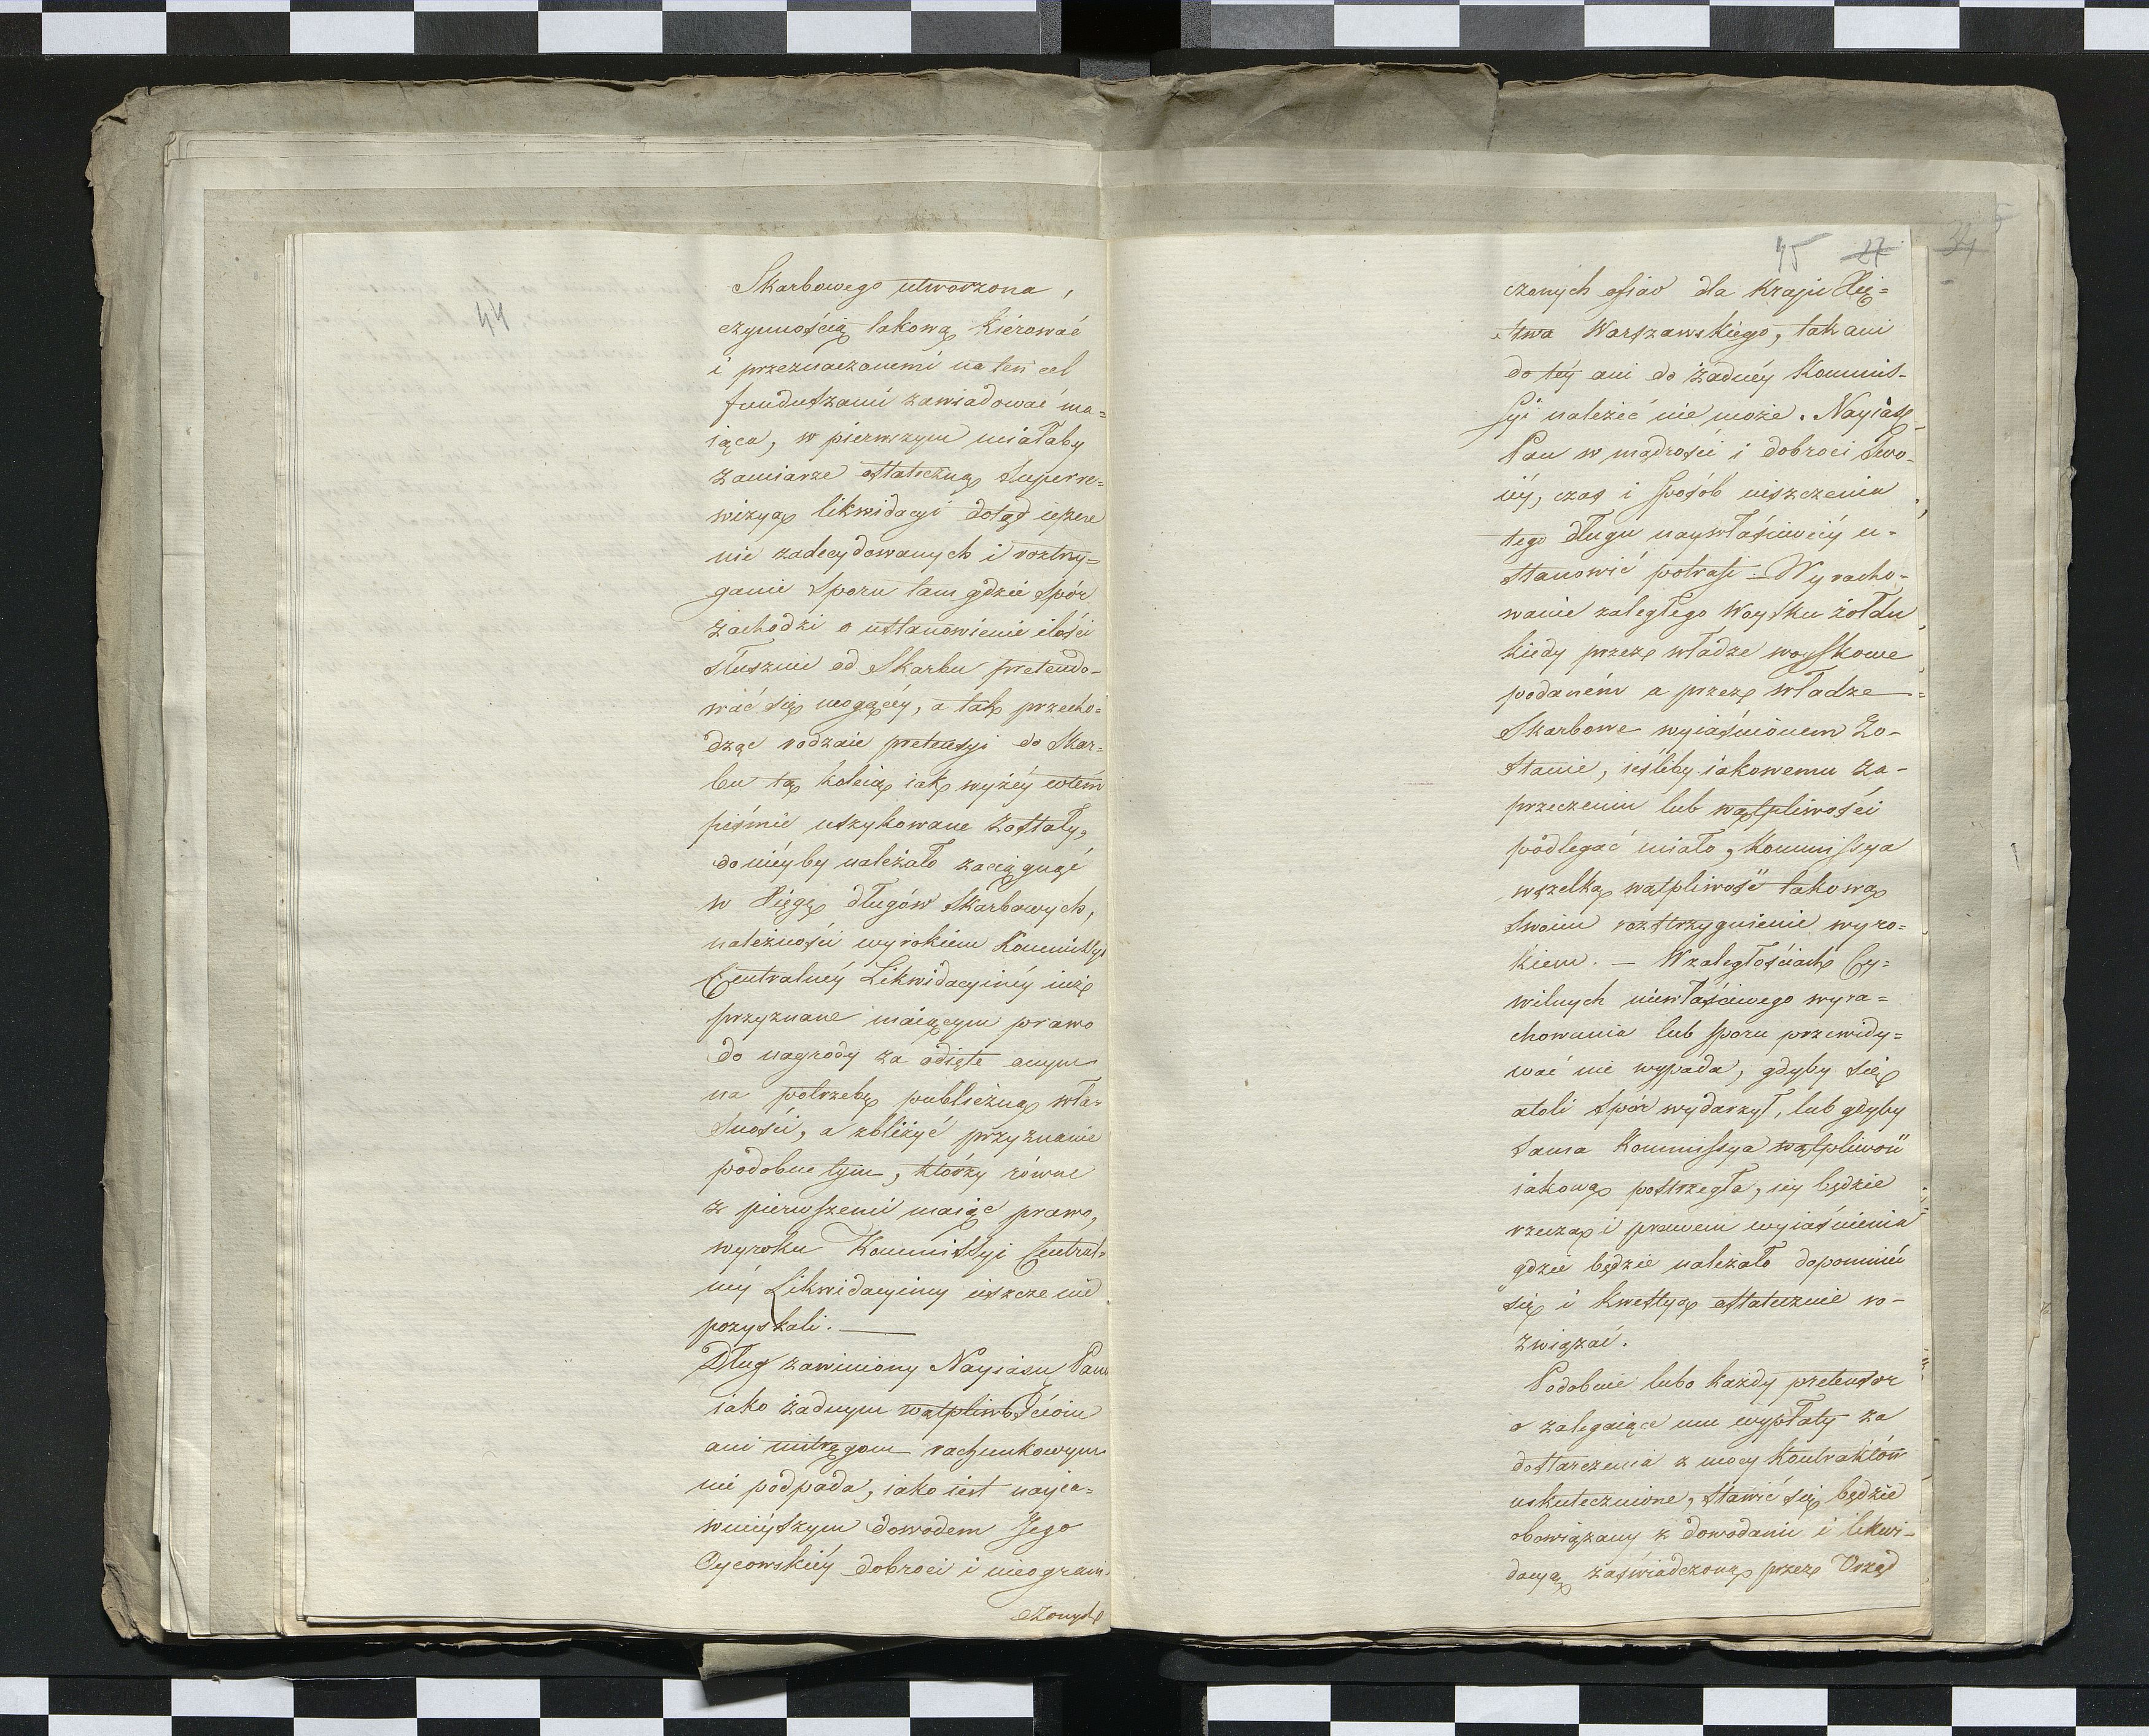 44
Skarbowego utworzona,
czynnością takową kierować
i przeznaczonemi na ten cel
funduszami zawiadować ma=
iąca, w pierwszym miałaby
zamiarze ostateczną superre=
wizyą likwidacyi dotąd ieszcze
nie zadecydowanych i roztrzy=
ganie sporu tam gdzie spór
zachodzi o ustanowienie ilości
słusznie od Skarbu pretendo-
wać się mogącéy, a tak przecho=
dząc rodzaie pretensyi do Skar=
bu tą koleią iak wyżéy w tem
piśmie uszykowane zostały,
do niéyby należało zaciągnąć
w Xięgę długów Skarbowych,
należności wyrokiem Kommissyi
Centralnéy Likwidacyinéy iuż
przyznane maiącym prawo
do nagrody za odięte onym
na potrzebę publiczną wła-
sności, a zbliżyć przyznanie
podobne tym, którzy równe
z pierwszemi maiąc prawo,
wyroku Kommissyi Central=
néy Likwidacyiney ieszcze nie
pozyskali. —
Dług zawiniony Nayiaśn Panu
iako żadnym wątpliwościom
ani mitręgom rachunkowym
nie podpada, iako iest nayia=
wnieyszym dowodem Jego
Oycowskiéy dobroci i nieograni
czonych
45 27
34
czonych ofiar dla Kraju Xię=
stwa Warszawskiego, tak ani
do téy ani do żadnéy Kommis-
syi należeć nie może. Nayiaś
Pan w mądrości i dobroci swo-
iéy, czas i sposób niszczenia
tego długu naywłaściwiéy u-
stanowić potrafi. — Wyracho-
wanie zaległego Woysku żołdu
kiedy przez władze woyskowe
podaném a przez władze
Skarbowe wyiaśnionem zo-
stanie, ieśliby iakowemu za-
przeczeniu lub wątpliwości
podlegać miało, Kommissya
wszelką wątpliwość takową
swoim rozstrzygnienie wyro=
kiem. — W zaległościach Cy=
wilnych niewłaściwego wyra=
chowania lub sporu przewidy=
wać nie wypada, gdyby się
atoli spór wydarzył, lub gdyby
sama Kommissya wątpliwość
iakową postrzegła, iéy będzie
rzeczą i prawem wyiaśnienia
gdzie będzie należało dopomnieć
się i kwestyą ostatecznie ro-
związać.
Podobnie lubo każdy pretensor
o zalegaiące mu wypłaty za
dostarczenia z mocy kontraktów
uskutecznione, stawić się będzie
obowiązany z dowodami i likwi-
dacyą zaświadczoną przez Urząd